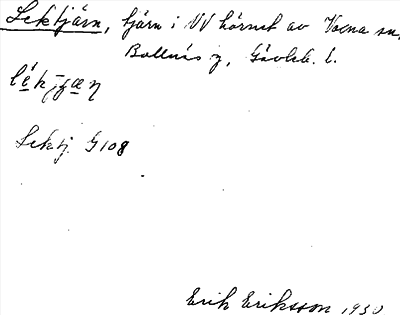 Lektjärn, tjärn i VV hörnet av Voxna sn,
Bollnäs , Gävleb. l.
Lektj. G108
Erik Eriksson 1930